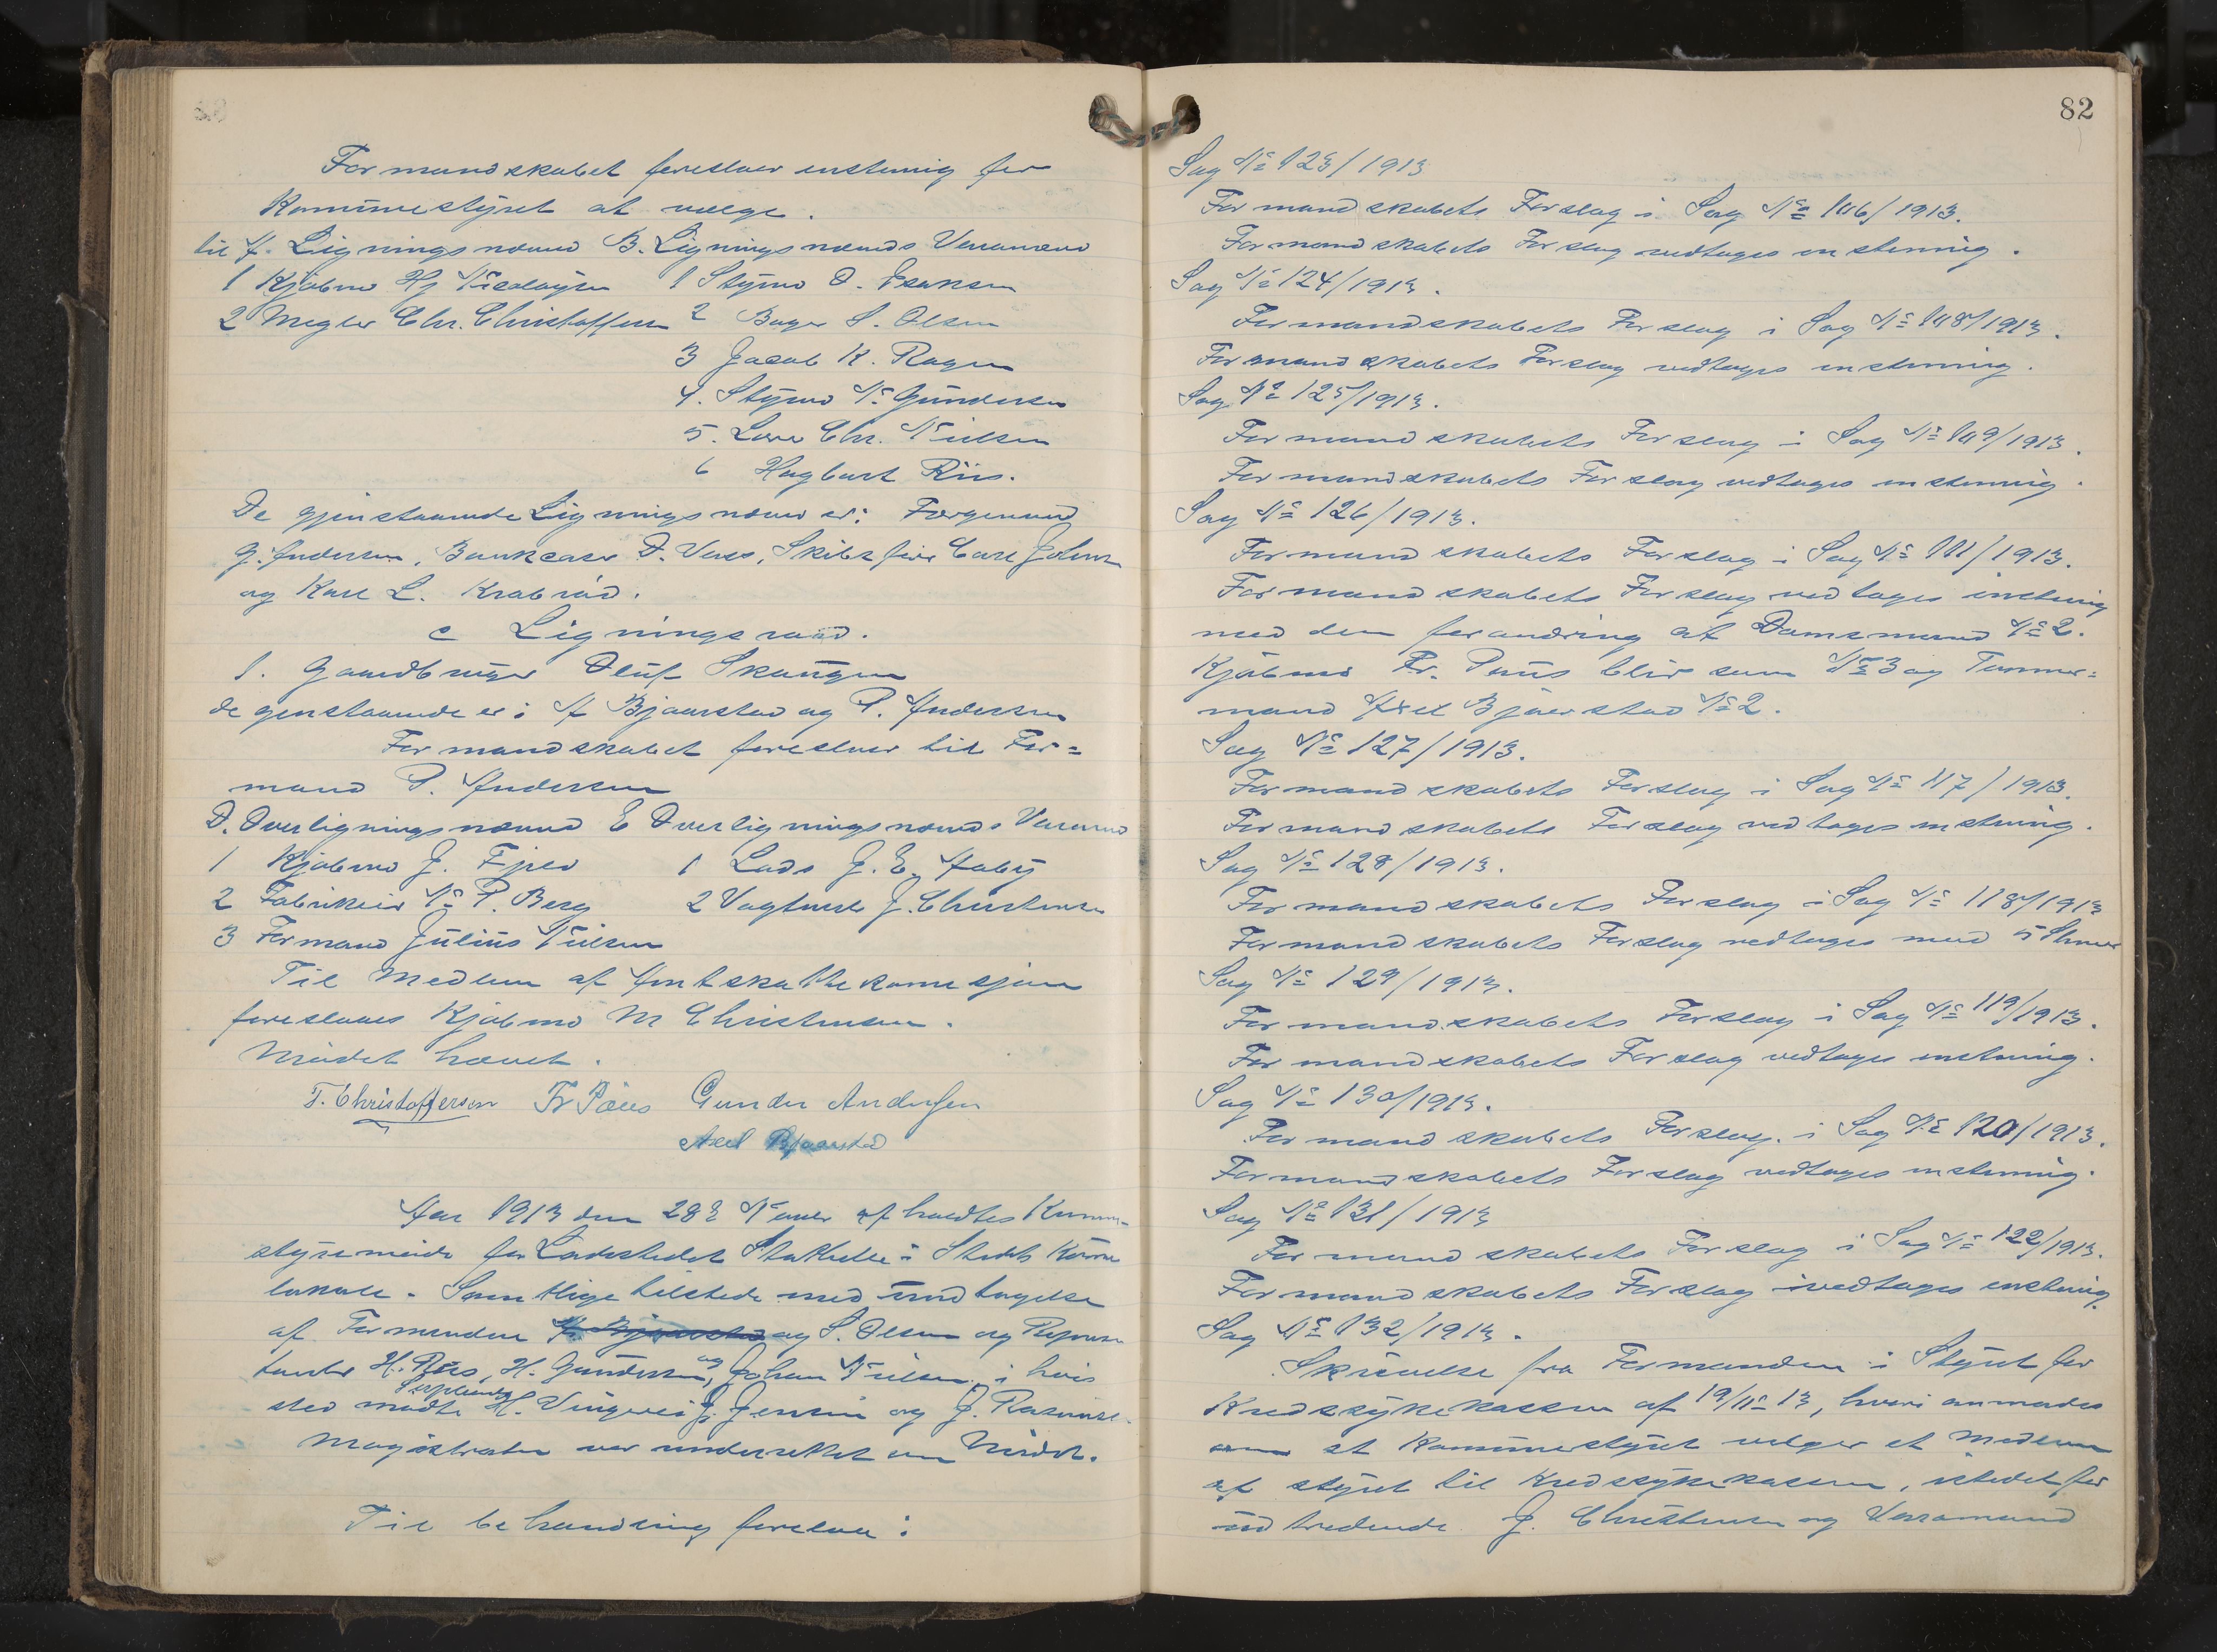 Formandskabet foreslaar enstemig for
Kommunestyret at vælge.
til A. Ligningsnævnd B. Ligningsnævnds Varamænd
1 Kjøbmd Hj Nicolaysen 1 Styrmd O. Isaksen
2 Megler Chr. Christoffersen 2 Bager S. Olsen
3 Jacob K. Ragen
4. Styrmd N. Gundersen
5. Chr. Nielsen
6 Hagbart Riis.
De gjenstaaende Ligningsnævnd er: Færgemand
G. Andersen, Bankcass. D. Vaas, Skibsfører Carl Johnsen
og Karl L. Krabrød.
c Ligningsraad.
1. Gaardbruger Oluf Skaugen
de genstaaende er: A Bjaarstad og P. Andersen
Formandskabet foreslaar til For=
mand P. Andersen
D. Overligningsnævnd E Overligningsnævnds Varamd
1 Kjøbmd J. Fjeld 1 Lods J. E. Aaby
2 Fabrikeier N. P. Berg 2 Vagtmest J. Christensen
3 Formand Julius Nielsen
Til Medlem af Amtskattekomesjon
foreslaaes Kjøbmd M Christensen.
Mødet hævet.
T. Christoffersen Fr Paus Gunder Andersen
Axel Bjaarstad
Aar 1913 den 28de Novbr afholdtes Kommune-
styremøde for Ladestedet Stathelle i Stedets Komune
lokale. Samtlige tilstede med undtagelse
af Formendene A. Bjaarstad og S. Olsen og Repræsen
tanter H. Riis, H. Gundersen, og Johan Nielsen, i hvis
sted mødte Suppleanter H. Vingereid J. Jensen og J. Rasmussen.
Magistraten var underrettet om Mødet.
Til behandling forelaa:
82
Sag No 123/1913
Formandskabets Forslag i Sag No 106/1913.
Formandskabets Forslag vedtages enstemig.
Sag No 124/1913.
Formandskabets Forslag i Sag No 108/1913.
Formandskabets Forslag vedtages enstemig.
Sag No 125/1913.
Formandskabets Forslag i Sag No 109/1913.
Formandskabets Forslag vedtages enstemig.
Sag No 126/1913.
Formandskabets Forslag i Sag No 111/1913.
Formandskabets Forslag vedtages enstemig
med den forandring at Domsmand No 2.
Kjøbmd Fr. Paus blir som No 3 og Tømmer=
mand Axel Bjaarstad No 2.
Sag No 127/1913.
Formandskabets Forslag i Sag No 117/1913.
Formandskabets Forslag vedtages enstemig.
Sag No 128/1913.
Formandskabets Forslag i Sag No 118/1913
Formandskabets Forslag vedtages med 5 Stemmer
Sag No 129/1913.
Formandskabets Forslag i Sag No 119/1913.
Formandskabets Forslag vedtages enstemig.
Sag No 130/1913.
Formandskabets Forslag i Sag No 120/1913.
Formandskabets Forslag vedtages enstemig.
Sag No 131/1913
Formandskabets Forslag i Sag No 122/1913.
Formandskabets Forslag vedtages enstemig.
Sag No 132/1913.
Skrivelse fra Formanden i Styret for
Kredssykekassen af 19/11-13, hvori anmodes
om at Kommunestyret velger et Medlem
af styret til Kredssykekassen, istedet for
udtredende J. Christensen og Varamand